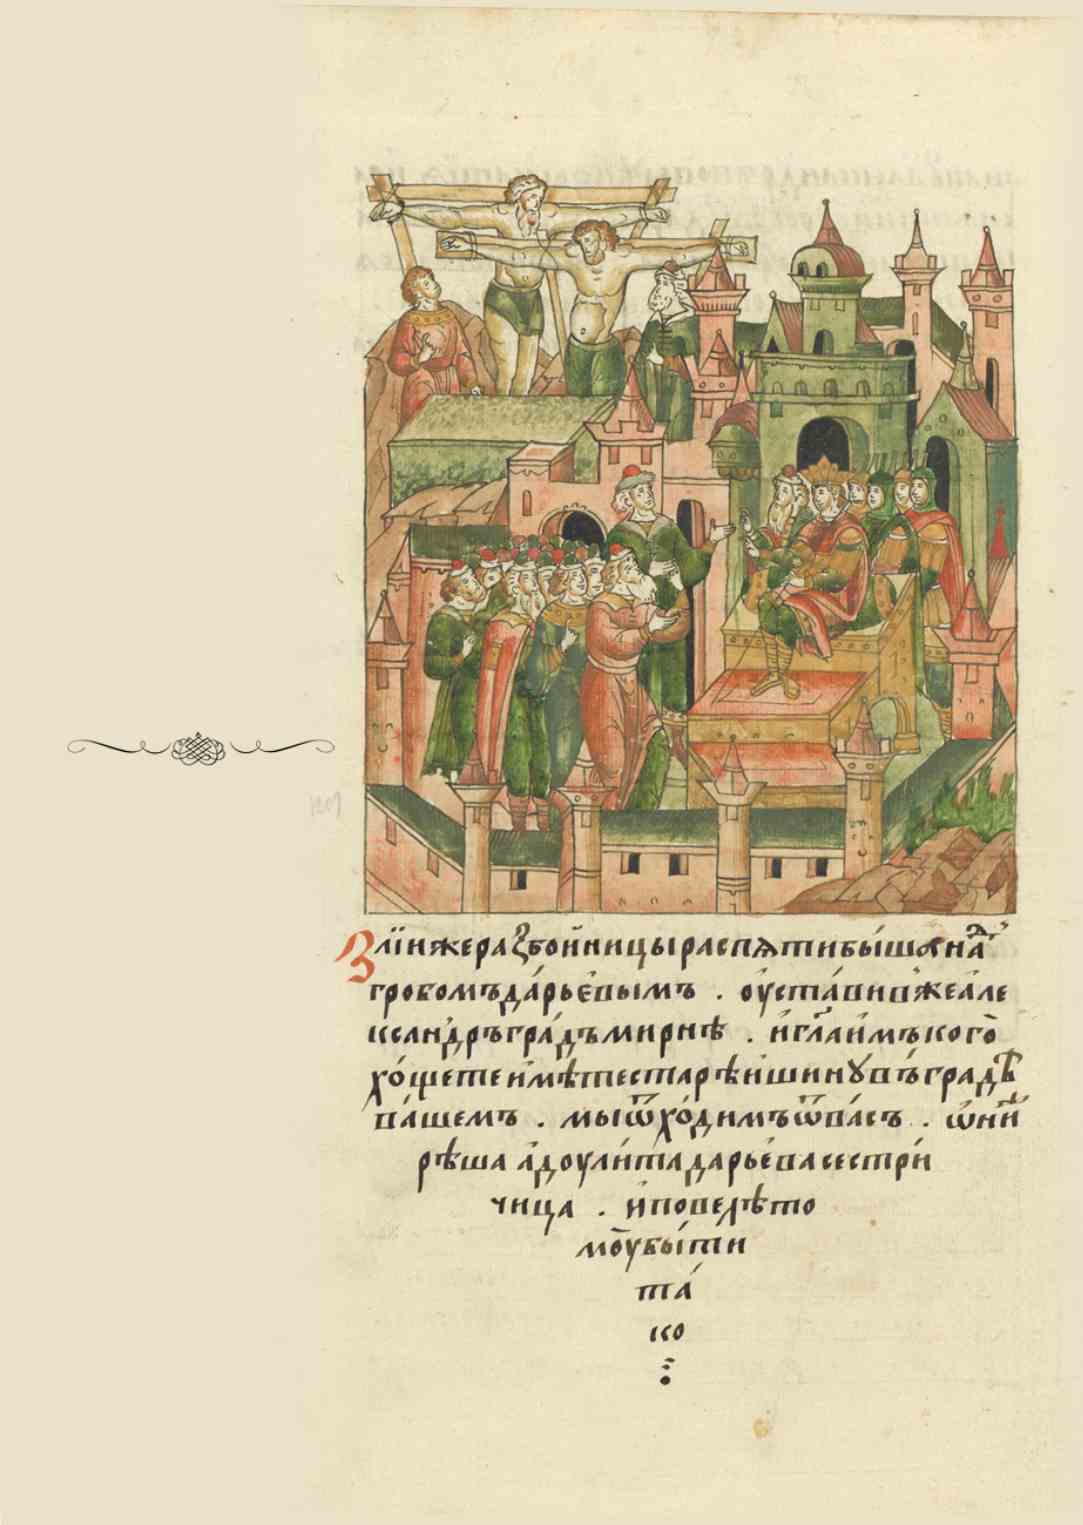 Злїи же разбойници распѧти бы́ша на́д
гробомъ да́рьевымъ . оуста́вив же а́ле
ксандръ гра́дъ мирнѣ . и҆ гл҃а и́мъ кого̀
хо́щете имѣти старѣйшину въ градѣ
ва́шемъ . мы ѿхо́димъ ѿ ва́съ . ѡни́ же
рѣша а҆доули́та дарьева сестри́
чица . и҆ повелѣ то
мо̀у бы́ти
та́
ко